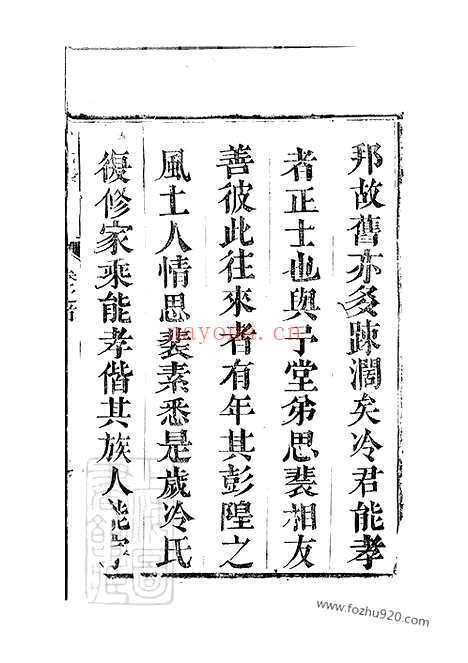 邦故舊亦多踈濶矣冷君能孝
者正士也與予堂弟思裴相友
善彼此往來者有年其彭隍之
風土人情思裴素悉是歲冷氏
復修家乘能孝偕其族人能字
nayona.cn
www.fozhu920.com